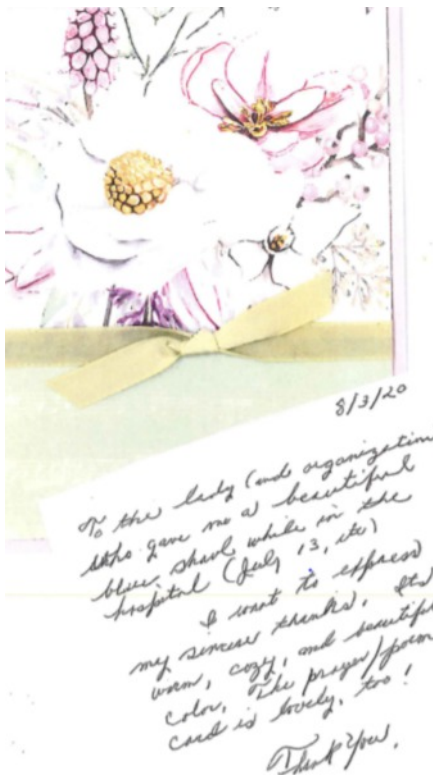 8/3/20
To the lady (and organization
who gave me a beautiful
blue shawl while in the
hospital (July 13, etc)
I want to express
my sincere thanks. Its
warm, cozy, and beautiful
color. The prayer/poem
card is lovely, too!
Thank You,